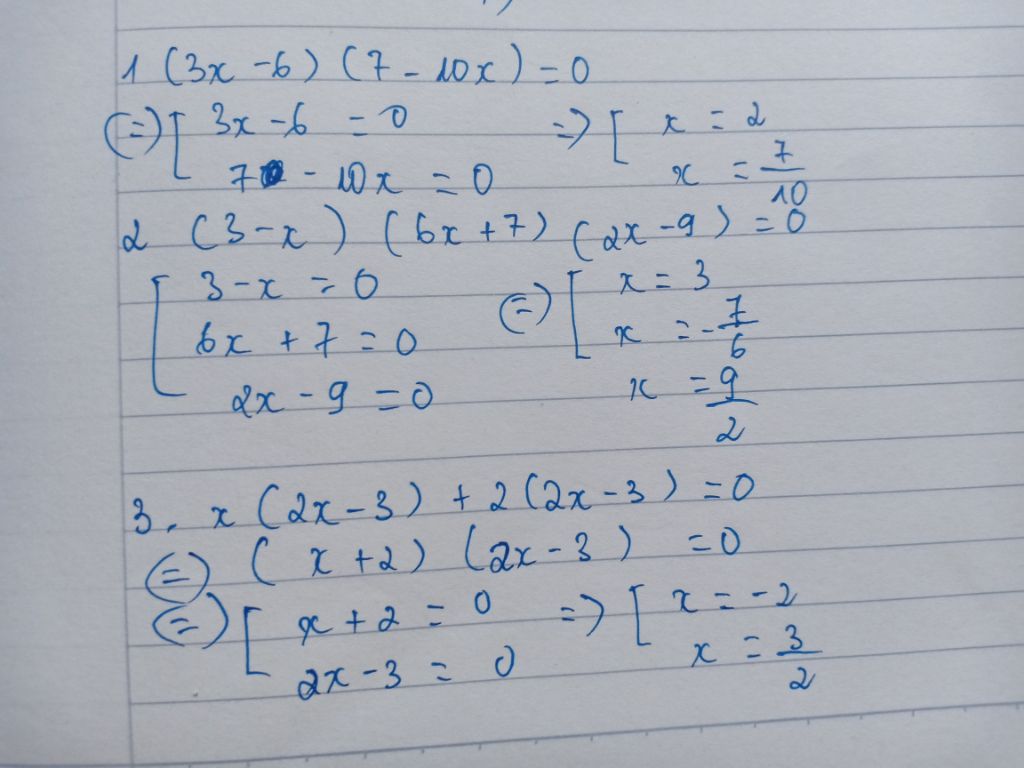 1 (3x - 6) (7 - 10x) = 0
(=) [ 3x - 6 = 0 => [ x = 2
7 - 10x = 0 x = 7/10
2 (3 - x) (6x + 7) (2x - 9) = 0
[ 3 - x = 0 (=) [ x = 3
6x + 7 = 0 x = -7/6
2x - 9 = 0 x = 9/2
3. x (2x - 3) + 2 (2x - 3) = 0
(=) (x + 2) (2x - 3) = 0
(=) [ x + 2 = 0 => [ x = -2
2x - 3 = 0 x = 3/2